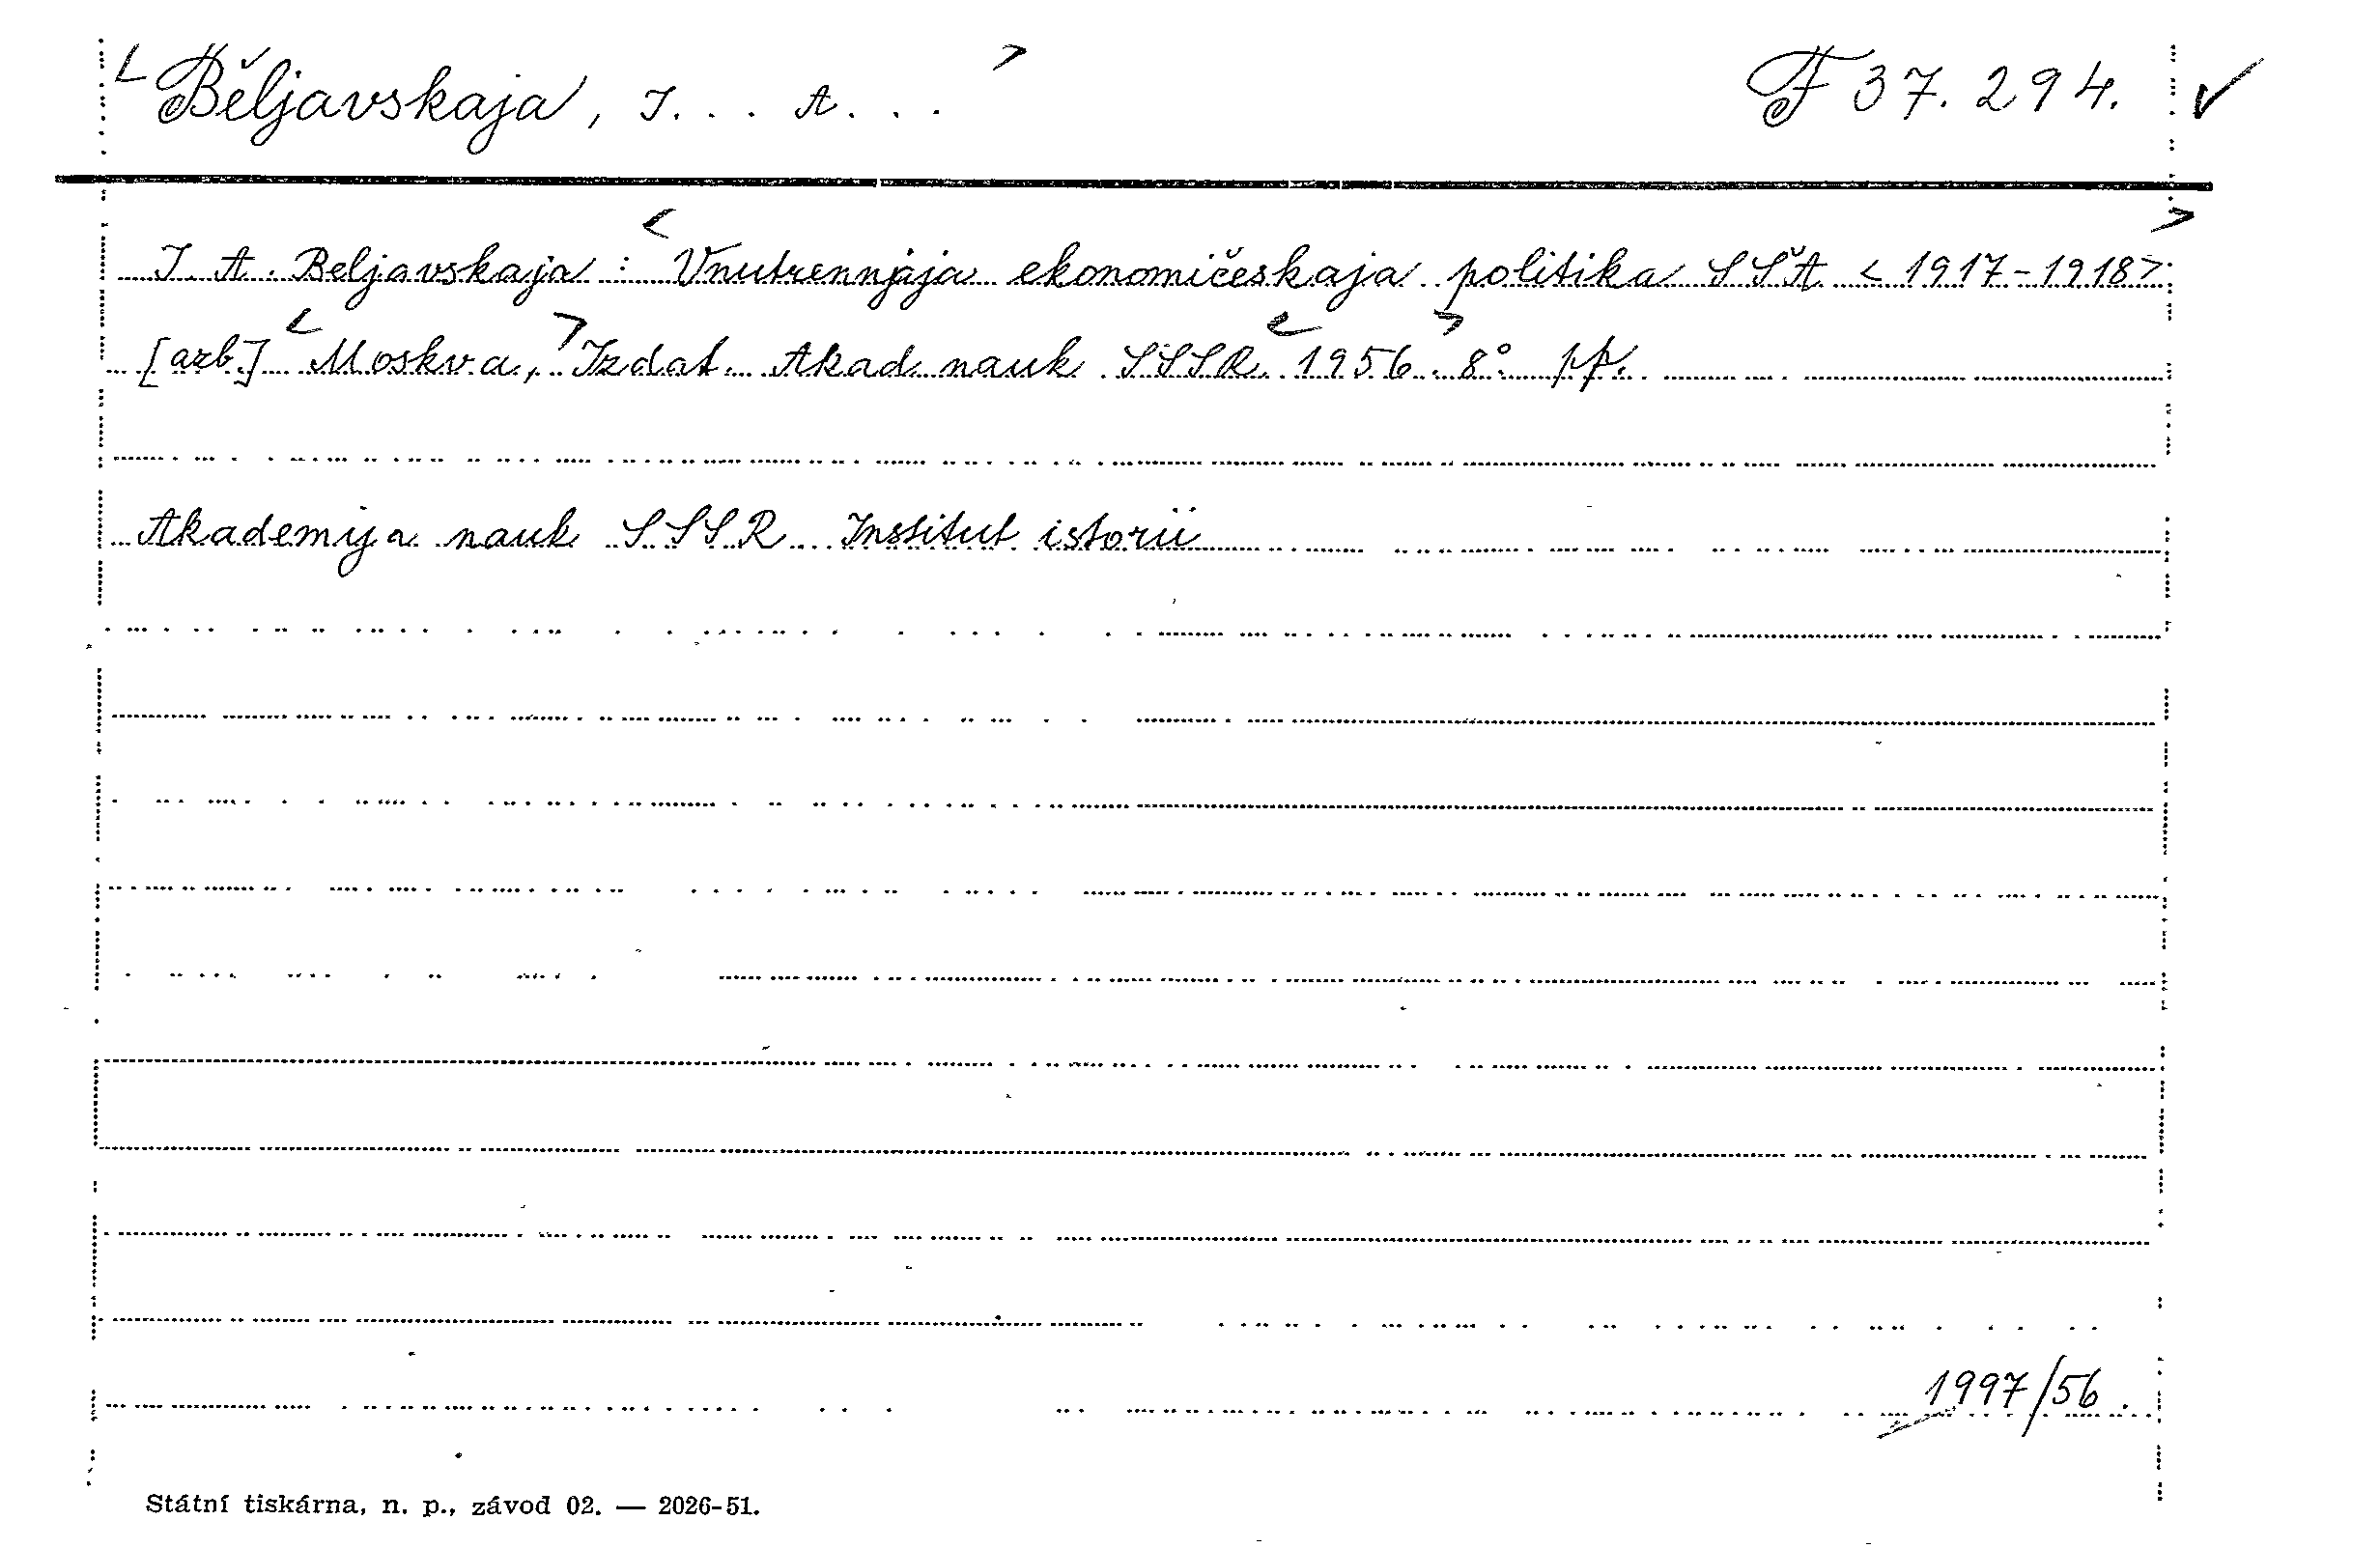 < Běljavskaja, I... A... > F 37.294. ✓
I. A. Beljavskaja : < Vnutrennjaja ekonomičeskaja politika SŠA < 1917-1918 > >
[azb.] < Moskva, > Izdat. Akad nauk SSSR < 1956 > . 8°. pf.
Akademija nauk SSSR Institut istorii
1997/56.
Státní tiskárna, n. p., závod 02. — 2026-51.